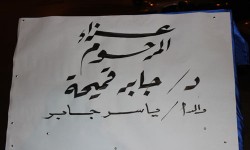 عزاء
المرحوم
د/ جابر قميحة
والد/ ياسر جابر